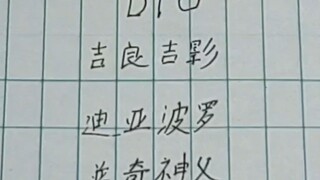 DIO
吉良吉影
迪亚波罗
普奇神父